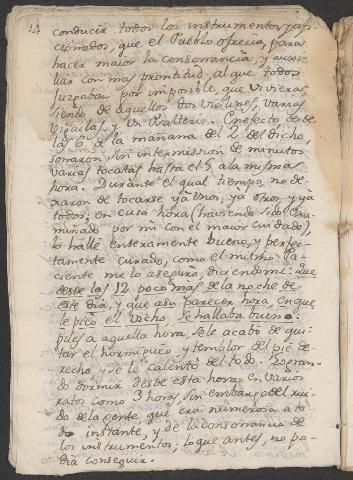 14
conducir todos los instrumentos, y afi-
cionados, que el Pueblo ofrecia, para
hacer maior la consonancia, y auxi-
liar con mas prontitud, al que todos
juzgaban por imposible, que viviera:
siendo de aquellos dos violines, varias
Vigüelas, y un Psalterio. Con efecto desde
las 6 de la mañana del 2 del dicho,
sonaron sin intermission de minutos
varias tocatas hasta el 5 a la misma
hora. Durante el qual tiempo, no de-
xaron de tocarse yà Unos, yà otros, y yà
todos; en cuia hora (haviendo sido exa-
minado por mi con el maior cuidado),
lo hallè enteramente bueno, y perfec-
tamente curado, como el mismo Pa-
ciente me lo asegurò, diciendome: que
desde las 12 poco mas de la noche de
este dia, y que a su parecer hora, en que
le picò el vicho, se hallaba bueno:
pues a aquella hora, se le acabò de qui-
tar el hormigueo, y temblor del pie de-
recho, y se le calentò del todo. Logran-
do dormir desde esta hora, en varios
ratos como 3 horas, sin embargo del rui-
do de la gente, que era numerosa a to-
do instante, y de la consonancia de
los instrumentos; lo que antes, no po-
dia conseguir.